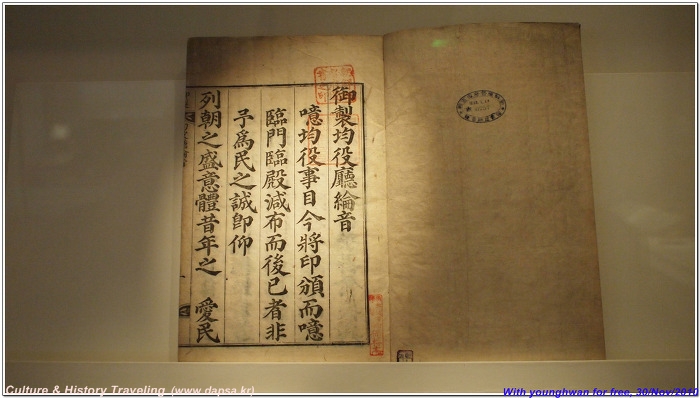 御製均役廳綸音
噫均役事目今將印頒而噫
臨門臨殿減布而後已者非
予爲民之誠卽仰
列朝之盛意體昔年之 愛民
Culture & History Traveling (www.dapsa.kr)
With younghwan for free, 30/Nov/2010